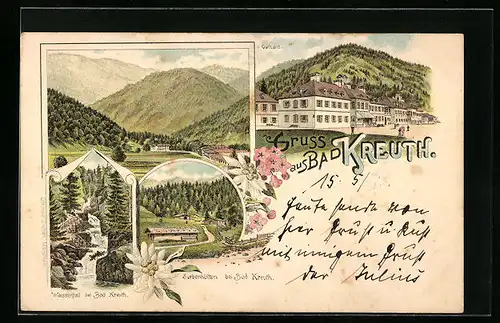 Curhaus.
Gruss
aus BAD KREUTH.
15. 5/
Heute sende von
hier Gruß u. Kuß
mit innigem Gruß
der Julius
Wasserfall bei Bad Kreuth.
Siebenhütten bei Bad Kreuth.